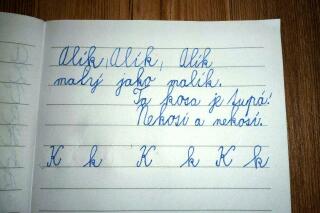 Alík, Alík, Alík
malý jako malík.
Ta kosa je tupá!
Nekosí a nekosí.
K k K k K k